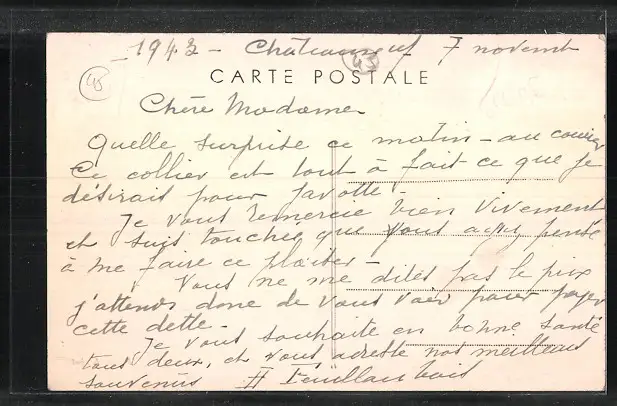 1943 - Châteauneuf 7 novemb
45
45
CARTE POSTALE
Chère Madame
Quelle surprise ce matin - au courrier
Ce collier est tout à fait ce que je
désirais pour Javotte!
Je vous remercie bien vivement
et suis touchée que vous ayez pensé
à me faire ce plaisir -
Vous ne me dites pas le prix
j'attends donc de vous voir pour payer
cette dette -
Je vous souhaite en bonne santé
tous deux, et vous adresse nos meilleurs
souvenirs